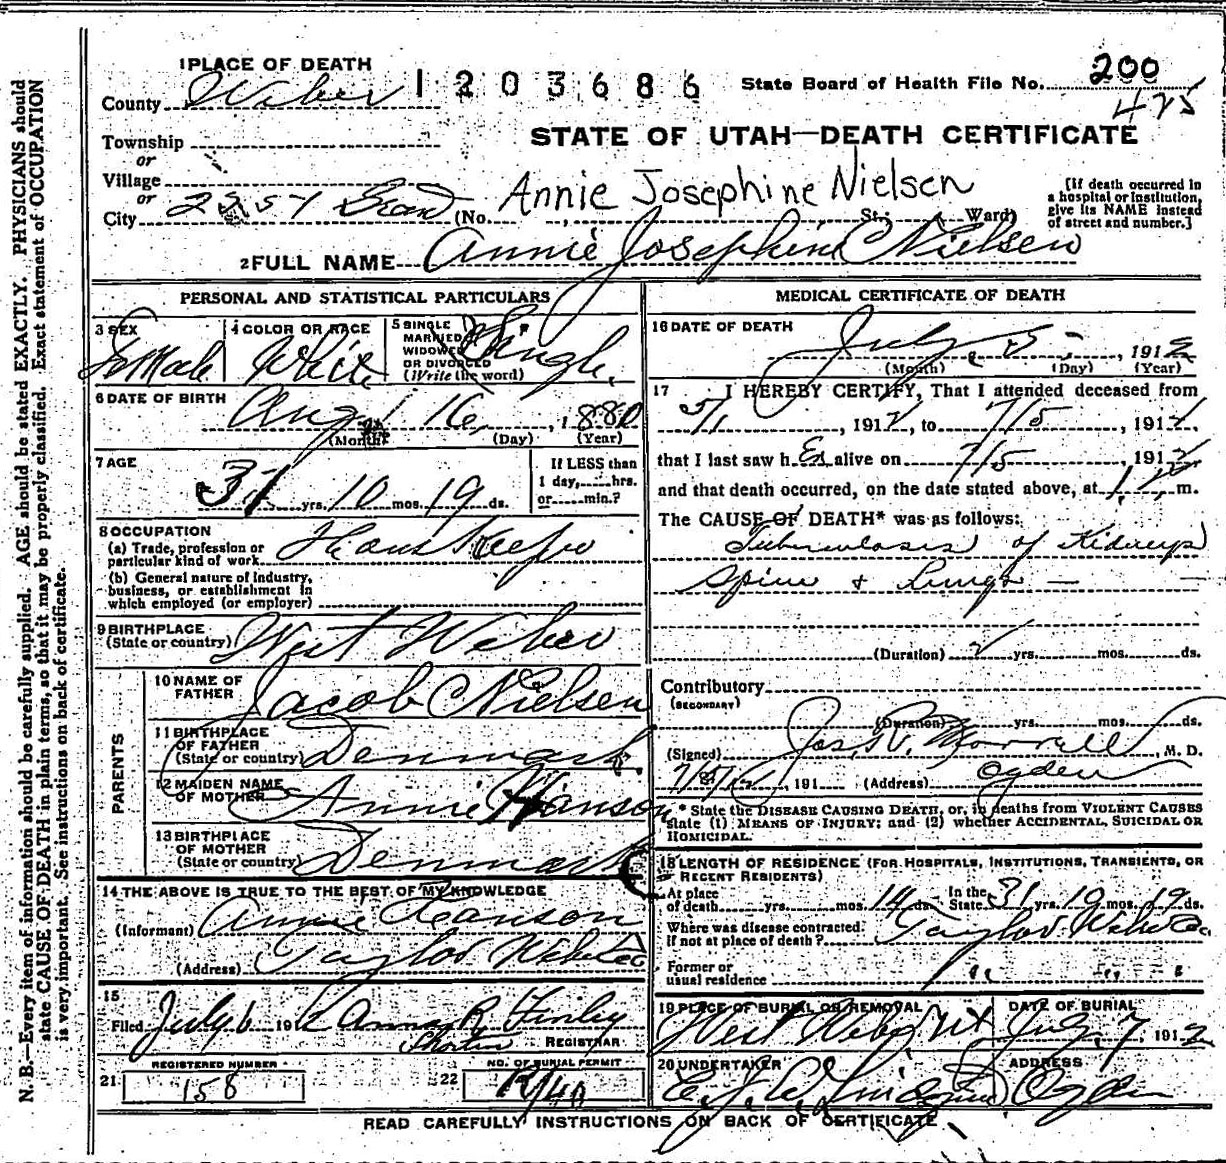 N. B.—Every item of information should be carefully supplied. AGE should be stated EXACTLY. PHYSICIANS should
state CAUSE OF DEATH in plain terms, so that it may be properly classified. Exact statement of OCCUPATION
is very important. See instructions on back of certificate.
1 PLACE OF DEATH
County Weber
1203686
State Board of Health File No. 200
475
STATE OF UTAH—DEATH CERTIFICATE
Township
or
Village
or
City (No. St.; Ward)
Annie Josephine Nielsen
[If death occurred in
a hospital or institution,
give its NAME instead
of street and number.]
2 FULL NAME Annie Josephine Nielsen
PERSONAL AND STATISTICAL PARTICULARS
3 SEX Female
4 COLOR OR RACE White
5 SINGLE
MARRIED
WIDOWED
OR DIVORCED
(Write the word) Single
6 DATE OF BIRTH
Aug 16, 1880
(Month) (Day) (Year)
7 AGE
31 yrs. 10 mos. 19 ds.
If LESS than
1 day, hrs.
or min.?
8 OCCUPATION
(a) Trade, profession or
particular kind of work
(b) General nature of industry,
business, or establishment in
which employed (or employer)
9 BIRTHPLACE
(State or country) West Weber
PARENTS
10 NAME OF
FATHER Jacob C Nielsen
11 BIRTHPLACE
OF FATHER
(State or country) Denmark
12 MAIDEN NAME
OF MOTHER Annie Hanson
13 BIRTHPLACE
OF MOTHER
(State or country) Denmark
14 THE ABOVE IS TRUE TO THE BEST OF MY KNOWLEDGE
(Informant) Annie Hanson
(Address) Taylor Weber Co
15
Filed July 6 1912 Anna R. Finley
REGISTRAR
REGISTERED NUMBER
21 158
NO. OF BURIAL PERMIT
22
MEDICAL CERTIFICATE OF DEATH
16 DATE OF DEATH
July 5, 1912
(Month) (Day) (Year)
17 I HEREBY CERTIFY, That I attended deceased from
5/1, 1912, to 7/5, 1912,
that I last saw her alive on 7/5 1912
and that death occurred, on the date stated above, at m.
The CAUSE OF DEATH* was as follows:
Tuberculosis of Kidneys
Spine + Lungs
(Duration) 2 yrs. mos. ds.
Contributory
(SECONDARY)
(Duration) yrs. mos. ds.
(Signed) Jos. R. Morrell, M. D.
7/5/12, 191 (Address) Ogden
* State the DISEASE CAUSING DEATH, or, in deaths from VIOLENT CAUSES
state (1) MEANS OF INJURY; and (2) whether ACCIDENTAL, SUICIDAL OR
HOMICIDAL.
18 LENGTH OF RESIDENCE (FOR HOSPITALS, INSTITUTIONS, TRANSIENTS, OR
RECENT RESIDENTS)
At place
of death yrs. mos. 14 ds. In the
State 31 yrs. 10 19 ds.
Where was disease contracted.
If not at place of death? Taylor Weber Co
Former or
usual residence " " "
19 PLACE OF BURIAL OR REMOVAL
West Weber Ut
DATE OF BURIAL
July 7 1912
20 UNDERTAKER
ADDRESS
Ogden
READ CAREFULLY INSTRUCTIONS ON BACK OF CERTIFICATE